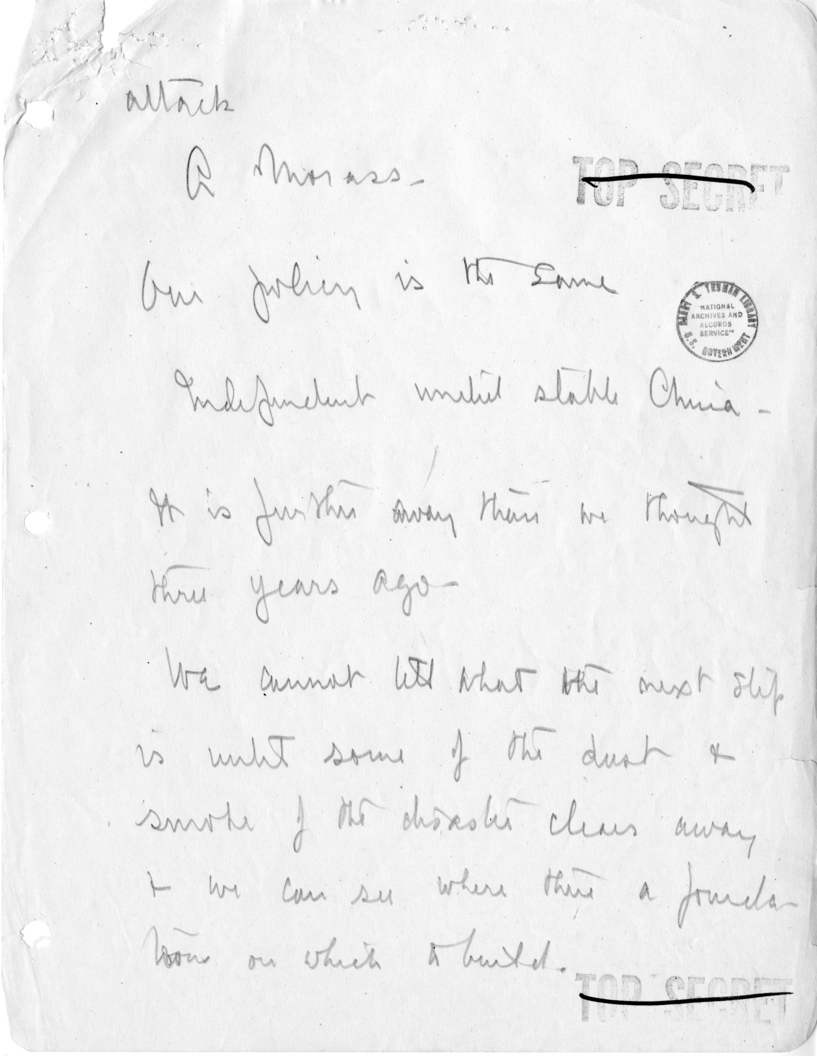 attack
A Morass-
TOP SECRET
Our policy is the same
HARRY S. TRUMAN LIBRARY
"NATIONAL
ARCHIVES AND
RECORDS
SERVICE"
U.S. GOVERNMENT
Independent united stable China -
It is further away than we thought
three years ago-
We cannot tell what the next step
is until some of the dust &
smoke of the disaster clears away
& we can see where there a founda-
tion on which to build.
TOP SECRET